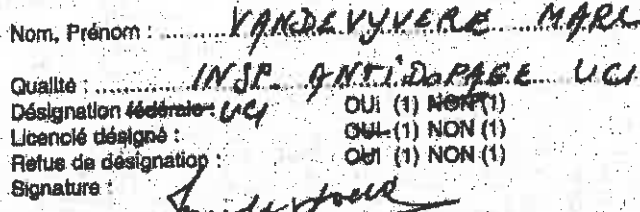 Nom, Prénom : ........ VANDEVYVERE MARC
Qualité : ........ INSP. ANTIDOPAGE UCI
Désignation fédérale : UCI OUI (1) NON (1)
Licencié désigné : OUI (1) NON (1)
Refus de désignation : OUI (1) NON (1)
Signature :